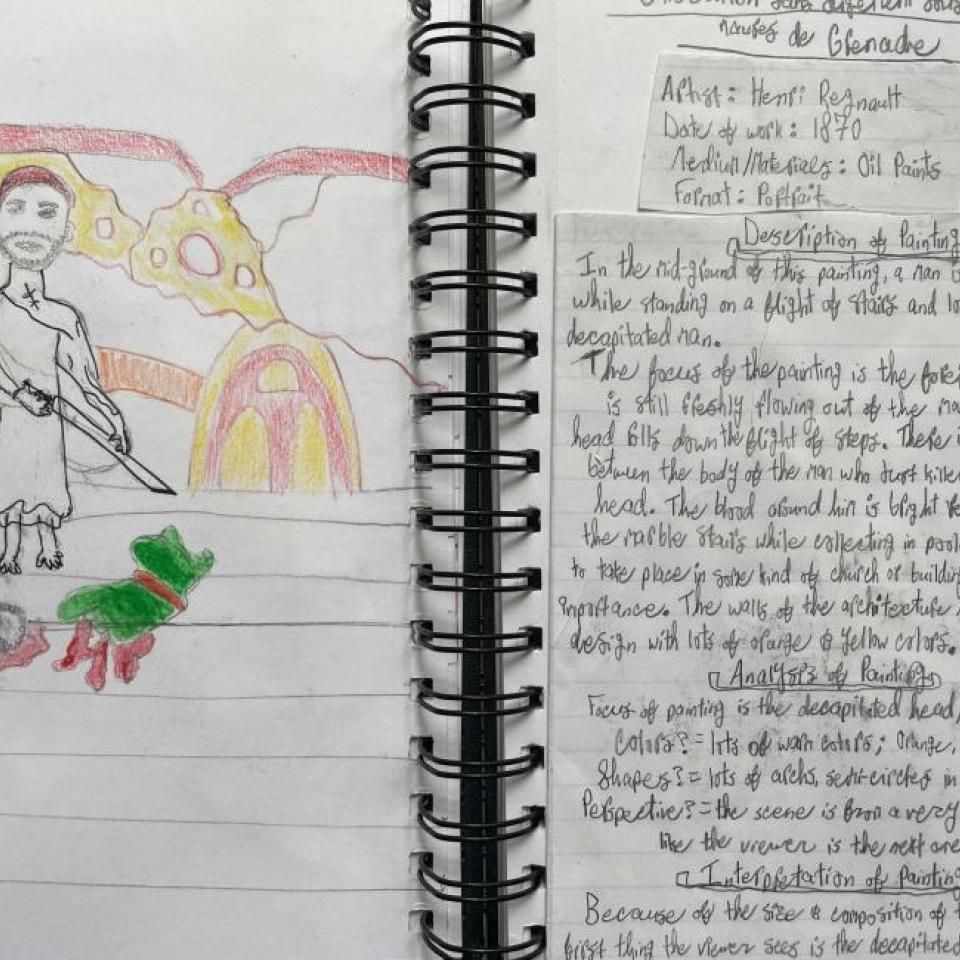 nauses de Grenade
Artist: Henri Regnault
Date of work: 1870
Medium/Materials: Oil Paints
Format: Portrait
Description of Painting
In the mid-ground of this painting, a man is
while standing on a flight of stairs and lo
decapitated man.
The focus of the painting is the fore
is still freshly flowing out of the ma
head falls down the flight of steps. There i
between the body of the man who just kille
head. The blood around him is bright re
the marble stairs while collecting in pool
to take place in some kind of church or building
importance. The walls of the architecture
design with lots of orange & yellow colors.
Analysis of Painting
Focus of painting is the decapitated head,
Colors? = lots of warm colors; orange,
Shapes? = lots of archs, semi-circles in
Perspective? = the scene is from a very
like the viewer is the next one
Interpretation of Painting
Because of the size & composition of t
first thing the viewer sees is the decapitated